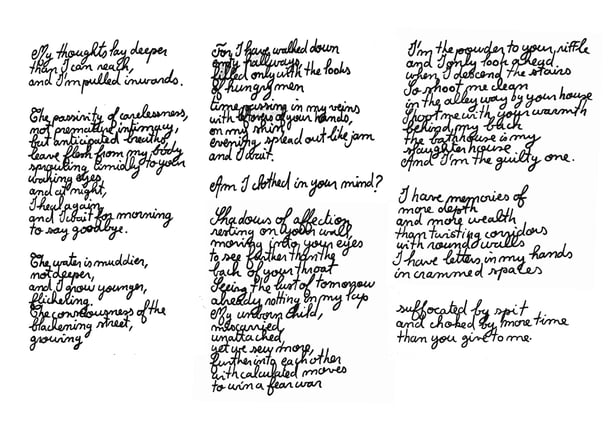 My thoughts lay deeper
than I can reach,
and I'm pulled inwards.
The passivity of carelessness,
not premature intimacy,
but anticipated breaths,
leave flesh from my body
sprouting timidly to your
waking eyes,
and at night,
I heal again
and I wait for morning
to say goodbye.
The water is muddier,
not deeper,
and I grow younger,
flickering.
The consciousness of the
blackening street,
growing
For I have walked down
empty hallways,
filled only with the looks
of hungry men
time passing in my veins
with of your hands,
on my shirt
evening spread out like jam
and I wait.
Am I clothed in your mind?
Shadows of affection
resting on your wall,
moving into your eyes
to see farther than the
back of your throat
Seeing the lust of tomorrow
already rotting in my lap
My unborn child,
miscarried,
unattached,
yet we sew more,
further into each other
with calculated moves
to win a fear war
I'm the powder to your riffle
and I only look ahead
when I descend the stairs
To shoot me clean
in the alley way by your house
I hope me with your warmth
behind my back
the bathhouse is my
slaughter house
And I'm the guilty one.
I have memories of
more depth
and more wealth
than twisting corridors
with round walls
I have letters in my hands
in crammed spaces
suffocated by spit
and choked by more time
than you give to me.